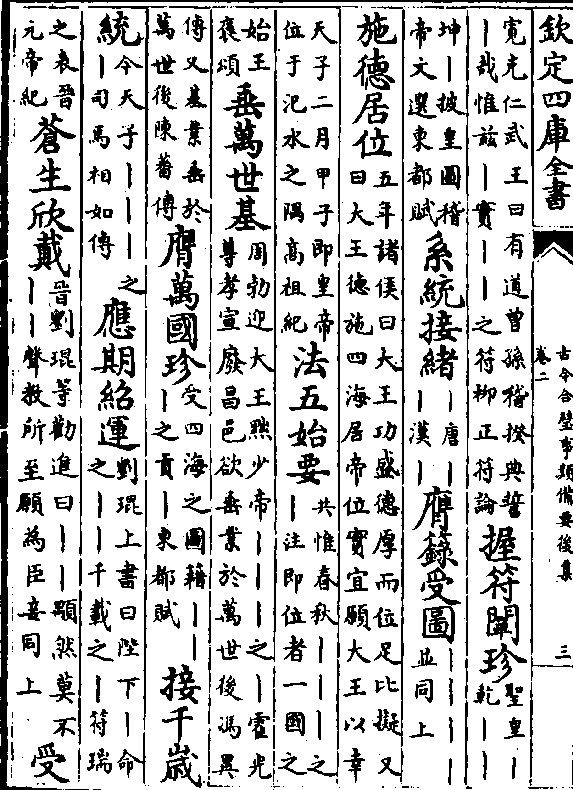 欽定四庫全書
古今合璧事類備要後集
卷二
三
寛克仁武王曰有道曽孫稽揆典誓
｜哉惟兹｜實｜｜之符柳正符論
握符闡珍
聖皇｜
乾｜｜
坤｜披皇圖稽
帝文選東都賦
系統接緒
｜唐｜
｜漢｜
膺籙受圖
｜｜｜｜
並同上
施德居位
五年諸侯曰大王功盛德厚而位足比擬又
曰大王德施四海居帝位實宜願大王以幸
天子二月甲子即皇帝
位于汜水之隅高祖紀
法五始要
共惟春秋｜｜｜之
｜注即位者一國之
始王
褒頌
垂萬世基
周勃迎大王㸃少帝｜｜｜之｜霍光
尊孝宣廢昌邑欲垂業於萬世後馮異
傳又基業垂於
萬世後陳蕃傳
膺萬國珍
受四海之圖籍｜｜
｜之貢｜東都賦
接千歲
統
今天子｜｜｜之
｜司馬相如傳
應期紹運
劉琨上書曰陛下｜命
之｜｜千載之｜符瑞
之表晉
元帝紀
蒼生欣戴
晉劉琨等勸進曰｜｜顒然莫不
｜｜聲教所至願為臣妾同上
受